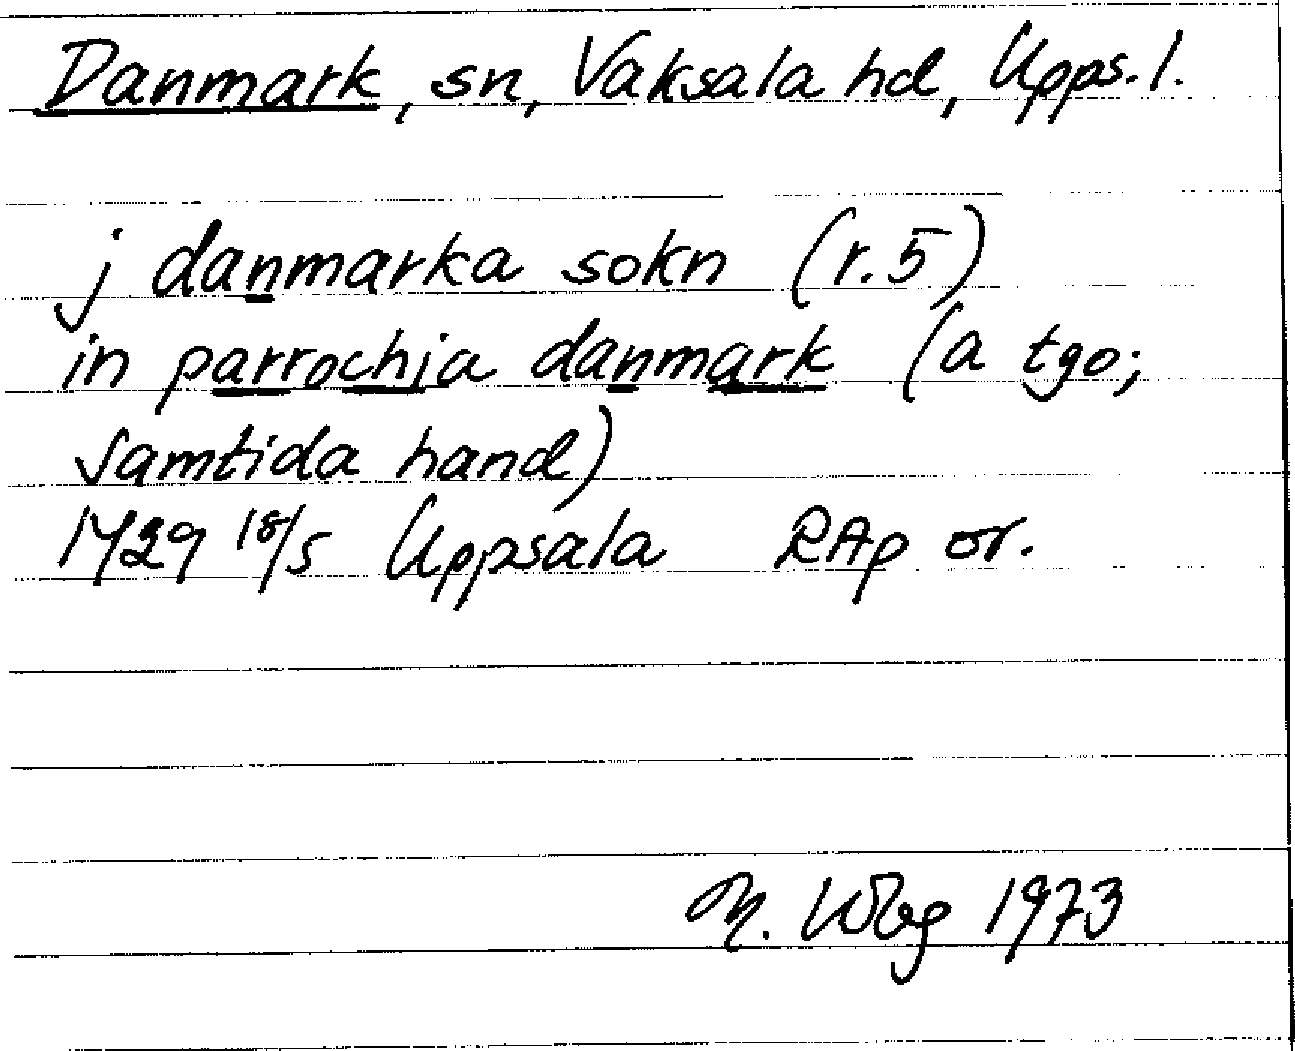 Danmark, sn, Vaksala hd, Upps. l.
j danmarka sokn (r. 5)
in parrochja danmark (a tgo;
samtida hand)
1429 18/5 Uppsala RAp or.
M. Wbg 1973